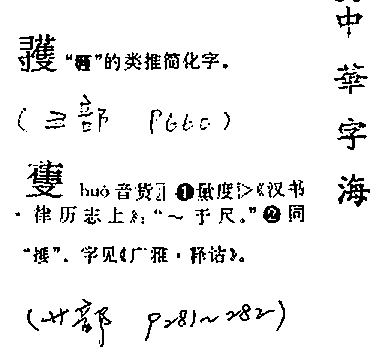 “”的类推简化字。
(彐部 P660)
huò 音货 ❶度《汉书
·律历志上》：“～于尺。”❷同
“”。字见《广雅·释诂》。
(艹部 P281~282)
中華字海